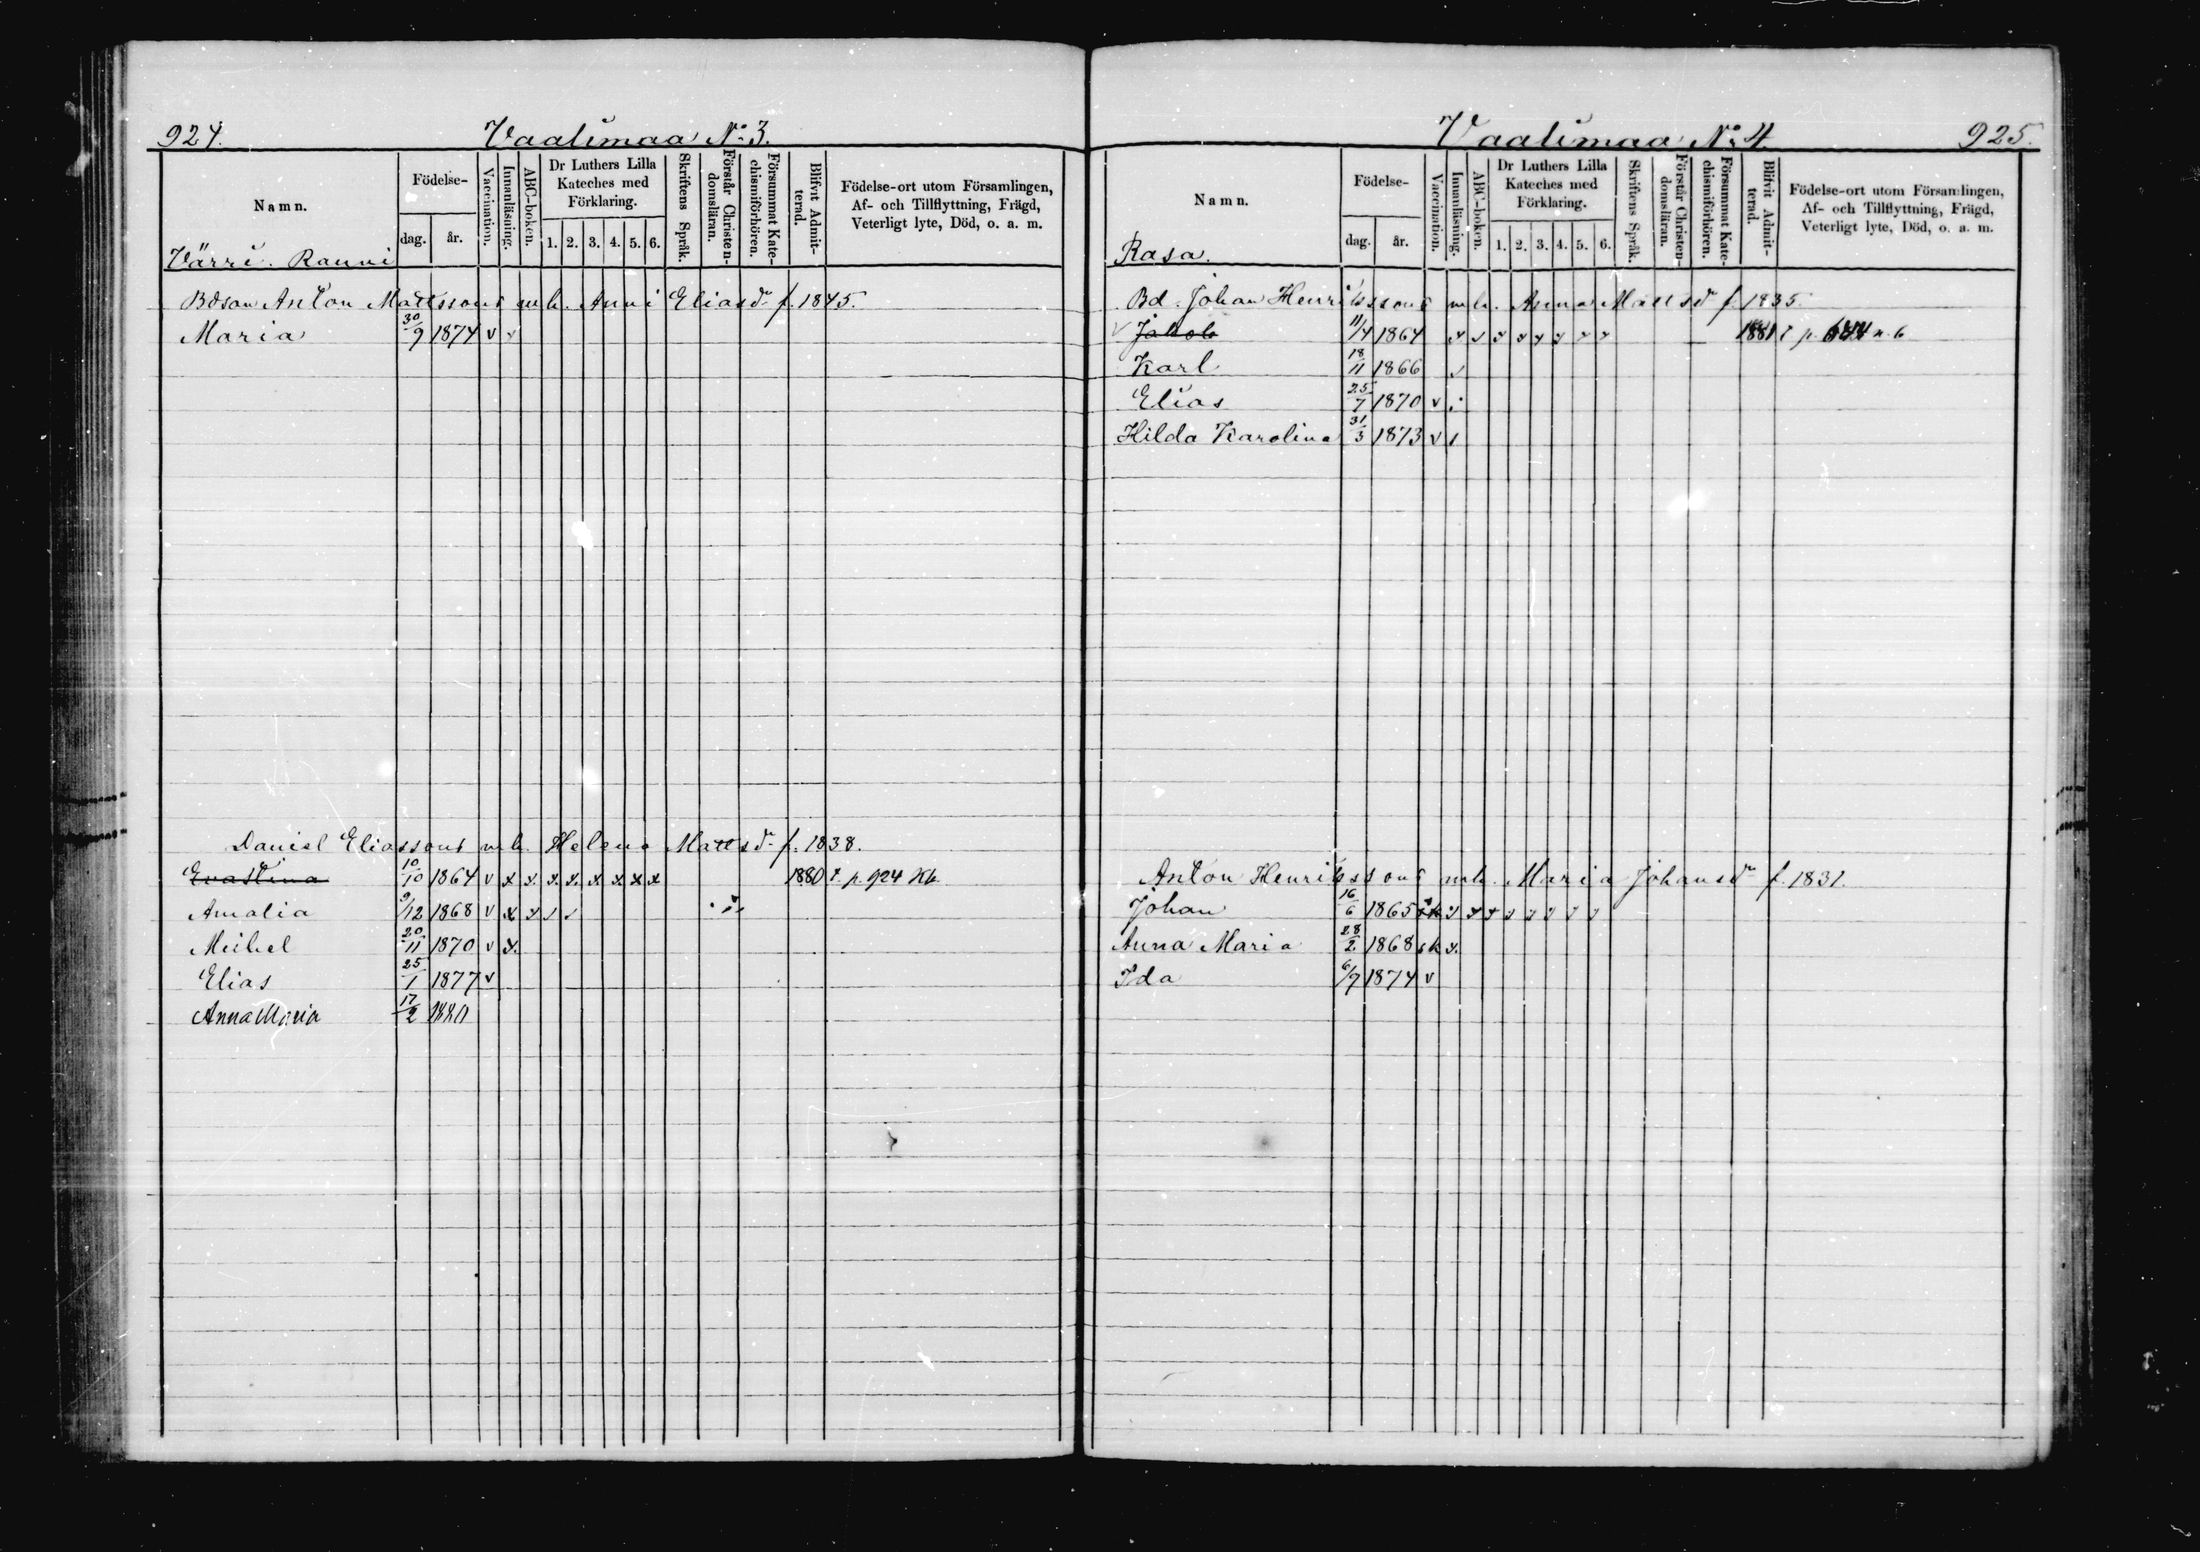 924. Vaalimaa No 3.
Namn. Födelse- dag. år. Vaccination. Innanläsning. ABC-boken. Dr Luthers Lilla Kateches med Förklaring. 1. 2. 3. 4. 5. 6. Skriftens Språk. Förstår Christendomsläran. Försummat Katechismiförhören. Blifvit Admitterad. Födelse-ort utom Församlingen, Af- och Tillflyttning, Frägd, Veterligt lyte, Död, o. a. m.
Värri. Ranni
Bdson Anton Mattssons m. h. Anni Eliasdr f. 1845.
Maria 30/9 1874 v v
Daniel Eliassons m. h. Helena Mattsdr f. 1838.
Evastina 10/10 1864 v x x. x. x. x x x x 1880 t. p. 924 Kb
Amalia 9/12 1868 v x v v v
Mikel 20/11 1870 v x.
Elias 25/1 1877 v
Anna Maria 17/2 1880
Vaalimaa No 4. 925.
Namn. Födelse- dag. år. Vaccination. Innanläsning. ABC-boken. Dr Luthers Lilla Kateches med Förklaring. 1. 2. 3. 4. 5. 6. Skriftens Språk. Förstår Christendomsläran. Försummat Katechismiförhören. Blifvit Admitterad. Födelse-ort utom Församlingen, Af- och Tillflyttning, Frägd, Veterligt lyte, Död, o. a. m.
Rasa.
Bd. Johan Henrikssons m. h. Anna Mattsdr f. 1835.
v Jakob 11/4 1864 v v v v v v v v 1881 t p. 644 n. 6
Karl 18/11 1866 v
Elias 25/7 1870 v
Hilda Karolina 31/3 1873 v v
Anton Henrikssons m. h. Maria Johansdr f. 1831.
Johan 16/6 1865 sk v v v v v v v v
Anna Maria 28/2 1868 sk v.
Ida 6/9 1874 v